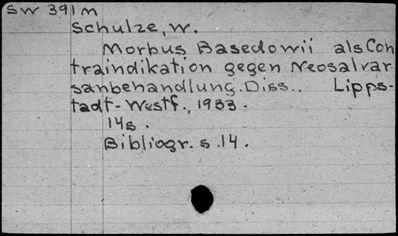 SW 391 M
Schulze, W.
Morbus Basedowii als Con
traindikation gegen Neosalvar
sanbehandlung. Diss.. Lipps-
tadt-Westf., 1933.
14s.
Bibliogr. s. 14.